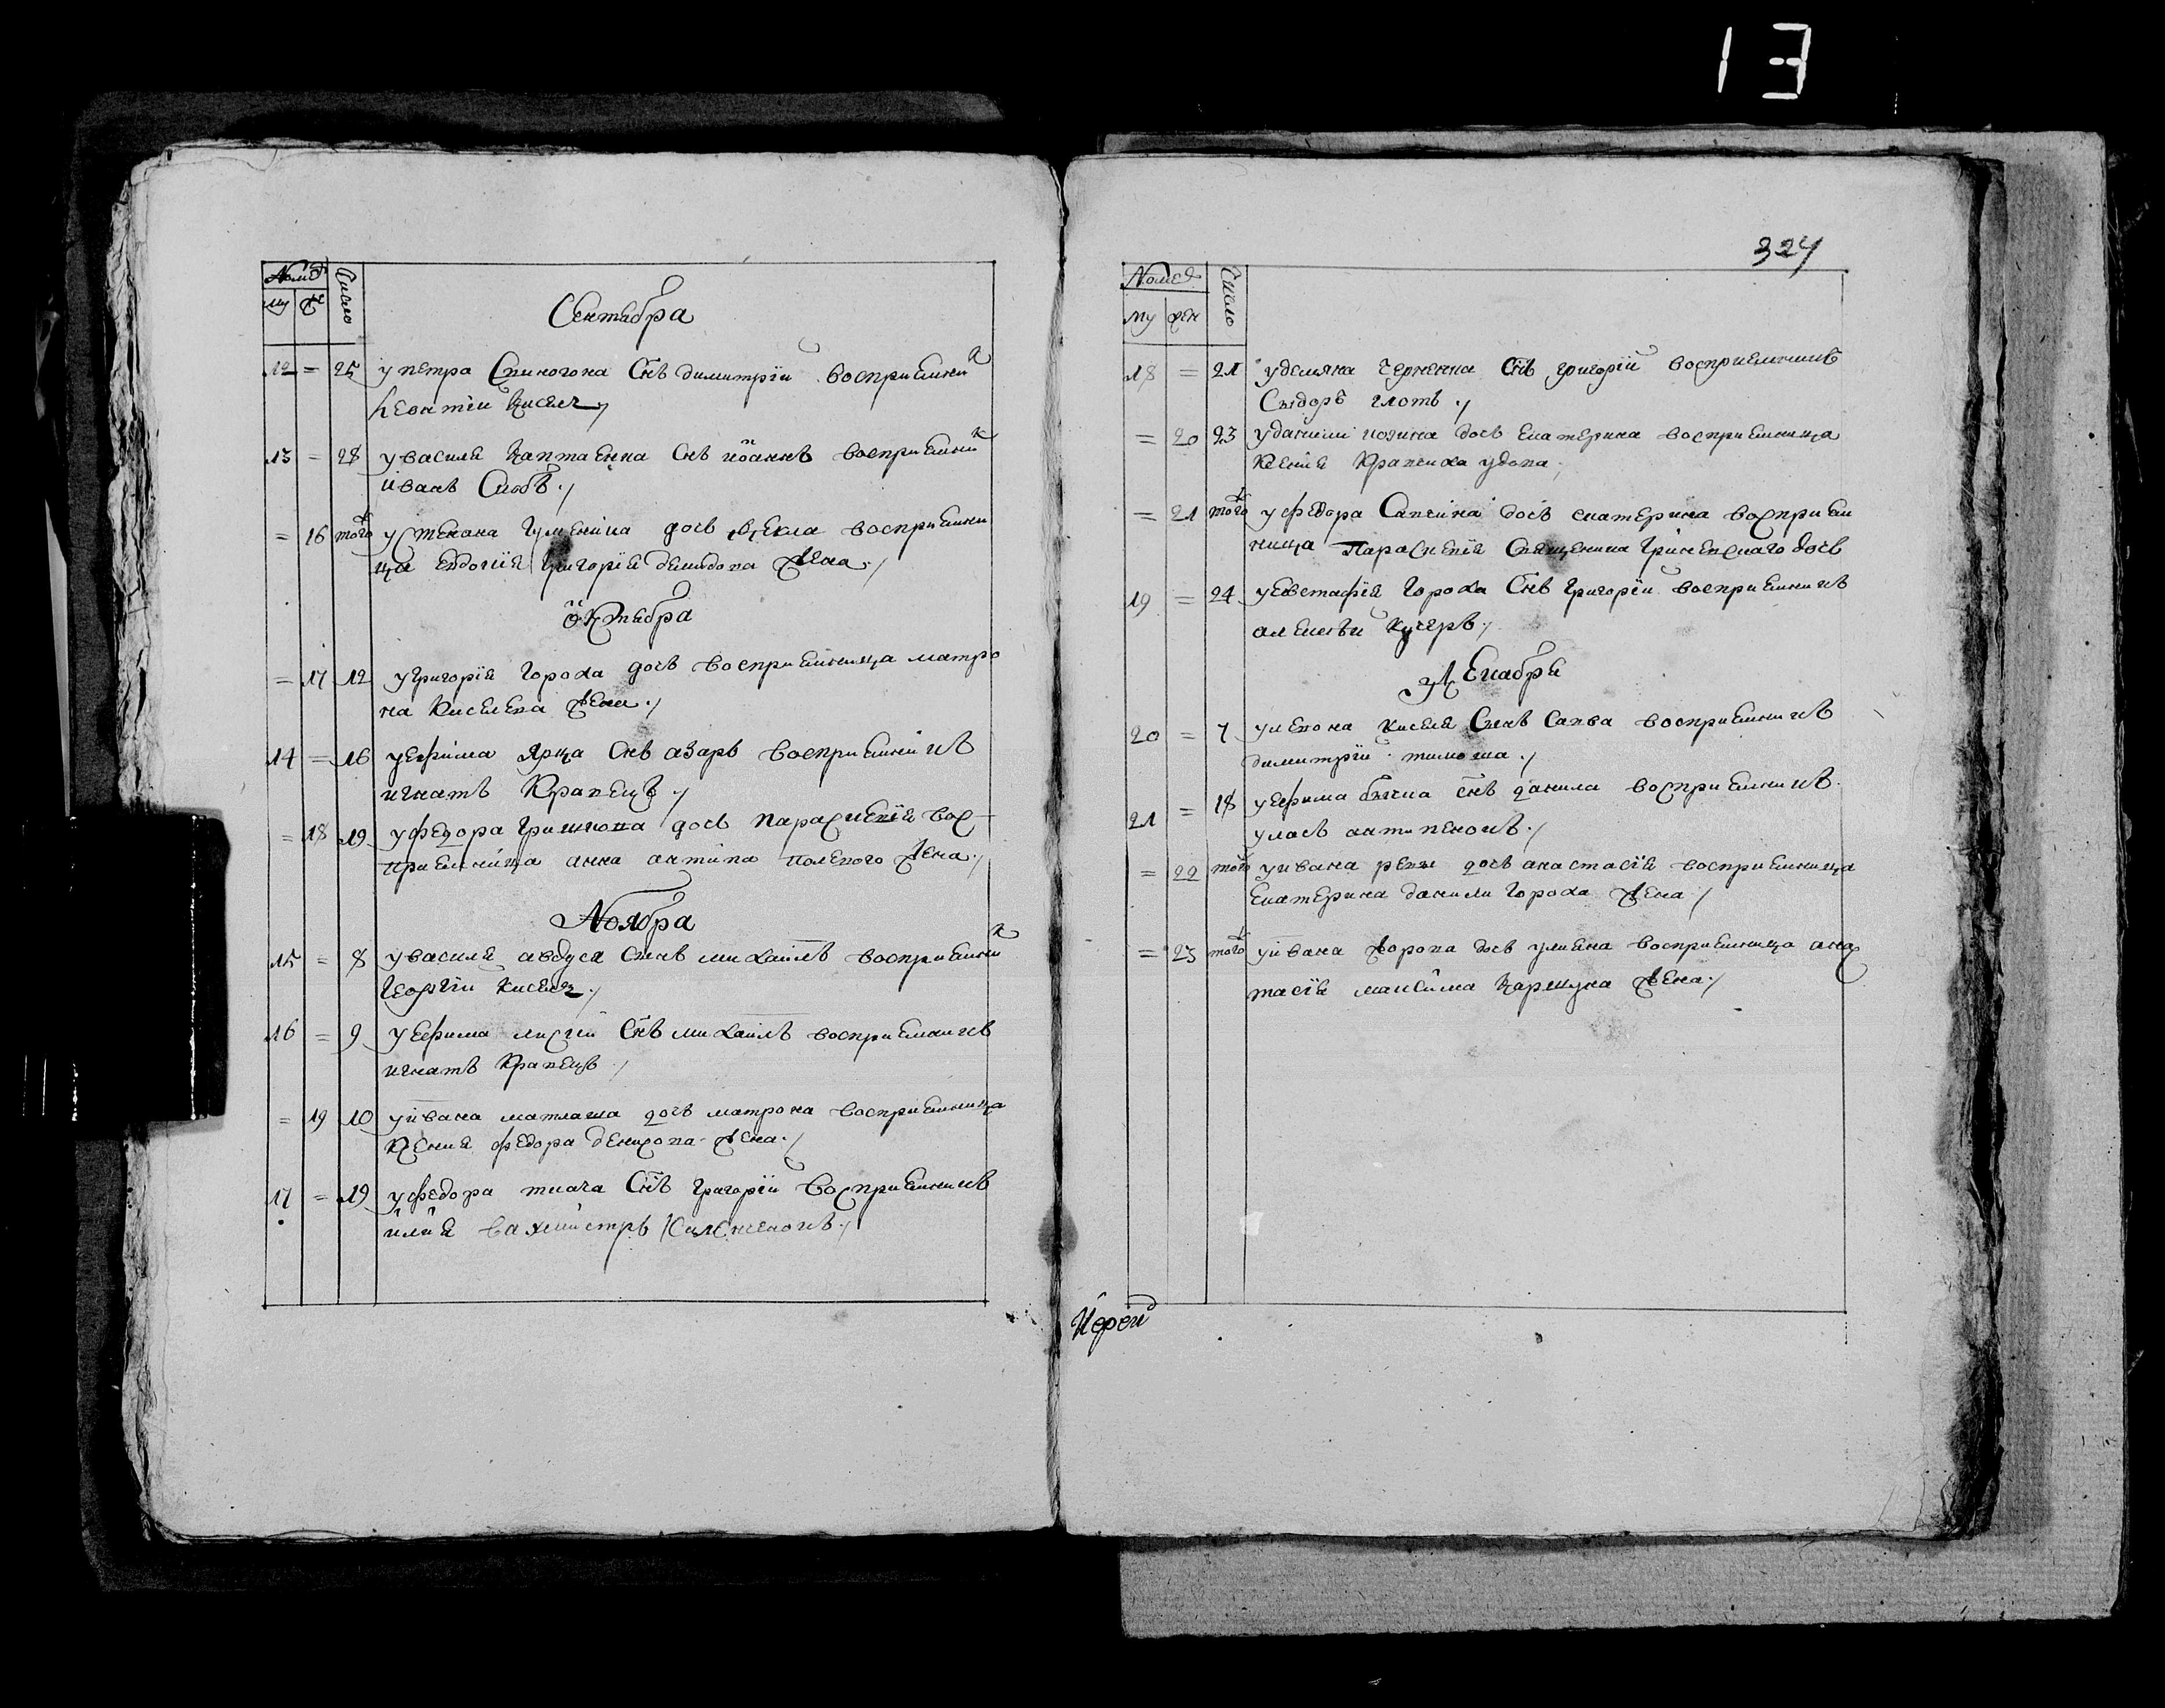 13
Номер Число
му же
Сентября
12 = 25 у петра Спиногона Снъ димитрїй восприемник
Леонтїй Кисель
13 = 28 у василя Каптаенка Снъ іоаннъ восприемник
иванъ
= 16 того у стефана Гуменика дочь Фекла восприемни
ца евдокїя григорїя демидова жена
Октября
= 17 12 у григорїя Гороха дочь восприемница матро
на Киселева жена
14 = 16 у ефима Ярца Снъ азаръ восприемникъ
игнатъ Кравецъ
= 18 19 у федора Гришкова дочь параскевїя вос
приемница анна антипа полевого жена
Ноября
15 = 8 у василя авдуся Снъ михаилъ восприемник
Георгїй Кисель
16 = 9 у ефима Снъ михаилъ восприемникъ
игнатъ Кравецъ
= 19 10 у ивана матлаша дочь матрона восприемница
Ксения федора денисова жена
17 = 19 у федора ткача Снъ григорїй восприемникъ
илия вахмистръ
324
Номер Число
му жен
18 = 21 у демяна черненка Снъ григорїй восприемникъ
Сыдоръ глоть
= 20 23 у данили дочь екатерина восприемница
Ксения Крапсиха удова
= 21 того у федора Сапсина дочь екатерина восприем
ница Параскевїя Священика Гриневскаго дочь
19 = 24 у евстафїя Гороха Снъ Григорїй восприемникъ
алексѣй Кучеръ
Декабря
20 = 7 у леона киселя Снъ Савва восприемникъ
димитрїй тимоша
21 = 18 у ефима быка снъ данила восприемникъ
уласъ антипенокъ
= 22 того у ивана репы дочь анастасїя восприемница
Екатерина данили Гороха жена
= 23 того у ивана дочь улияна восприемница анас
тасїя максима Каршуна жена
Иерей